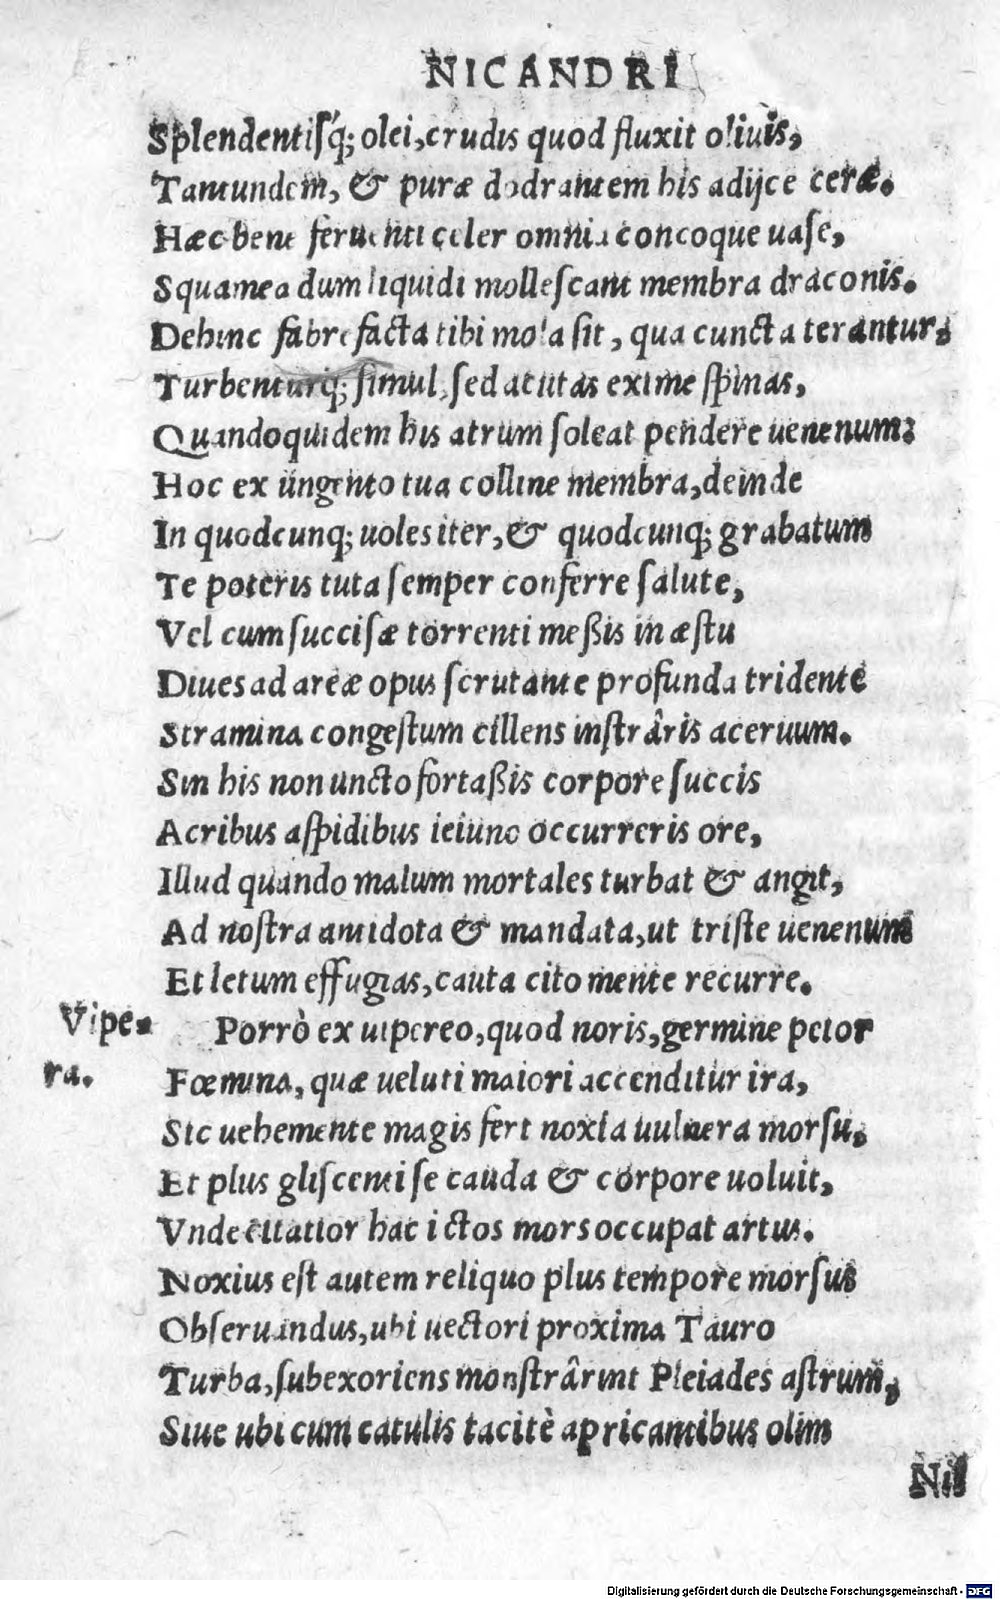 NICANDRI
Splendentisq́; olei, crudis quod fluxit oliuis,
Tantundem, & puræ dodrantem his adijce ceræ.
Hæc bene feruenti celer omnia concoque uase,
Squamea dum liquidi mollescant membra draconis.
Dehinc fabrefacta tibi mola sit, qua cuncta terantur,
Turbenturq́; simul, sed acutas exime spinas,
Quandoquidem his atrum soleat pendere uenenum:
Hoc ex ungento tua colline membra, deinde
In quodcunq; uoles iter, & quodcunq; grabatum
Te poteris tuta semper conferre salute,
Vel cum succisæ torrenti meßis in æstu
Diues ad areæ opus scrutante profunda tridente
Stramina congestum cillens instrâris aceruum.
Sin his non uncto fortaßis corpore succis
Acribus aspidibus ieiuno occurreris ore,
Illud quando malum mortales turbat & angit,
Ad nostra antidota & mandata, ut triste uenenum
Et letum effugias, cauta cito mente recurre.
Vipe-
ra.
Porrò ex uipereo, quod noris, germine petor
Fœmina, quæ ueluti maiori accenditur ira,
Sic uehemente magis fert noxia uulnera morsu,
Et plus gliscenti se cauda & corpore uoluit,
Vnde citatior hac ictos mors occupat artus.
Noxius est autem reliquo plus tempore morsus
Obseruandus, ubi uectori proxima Tauro
Turba, subexoriens monstrârint Pleiades astrum,
Siue ubi cum catulis tacitè apricantibus olim
Nil
Digitalisierung gefördert durch die Deutsche Forschungsgemeinschaft - DFG